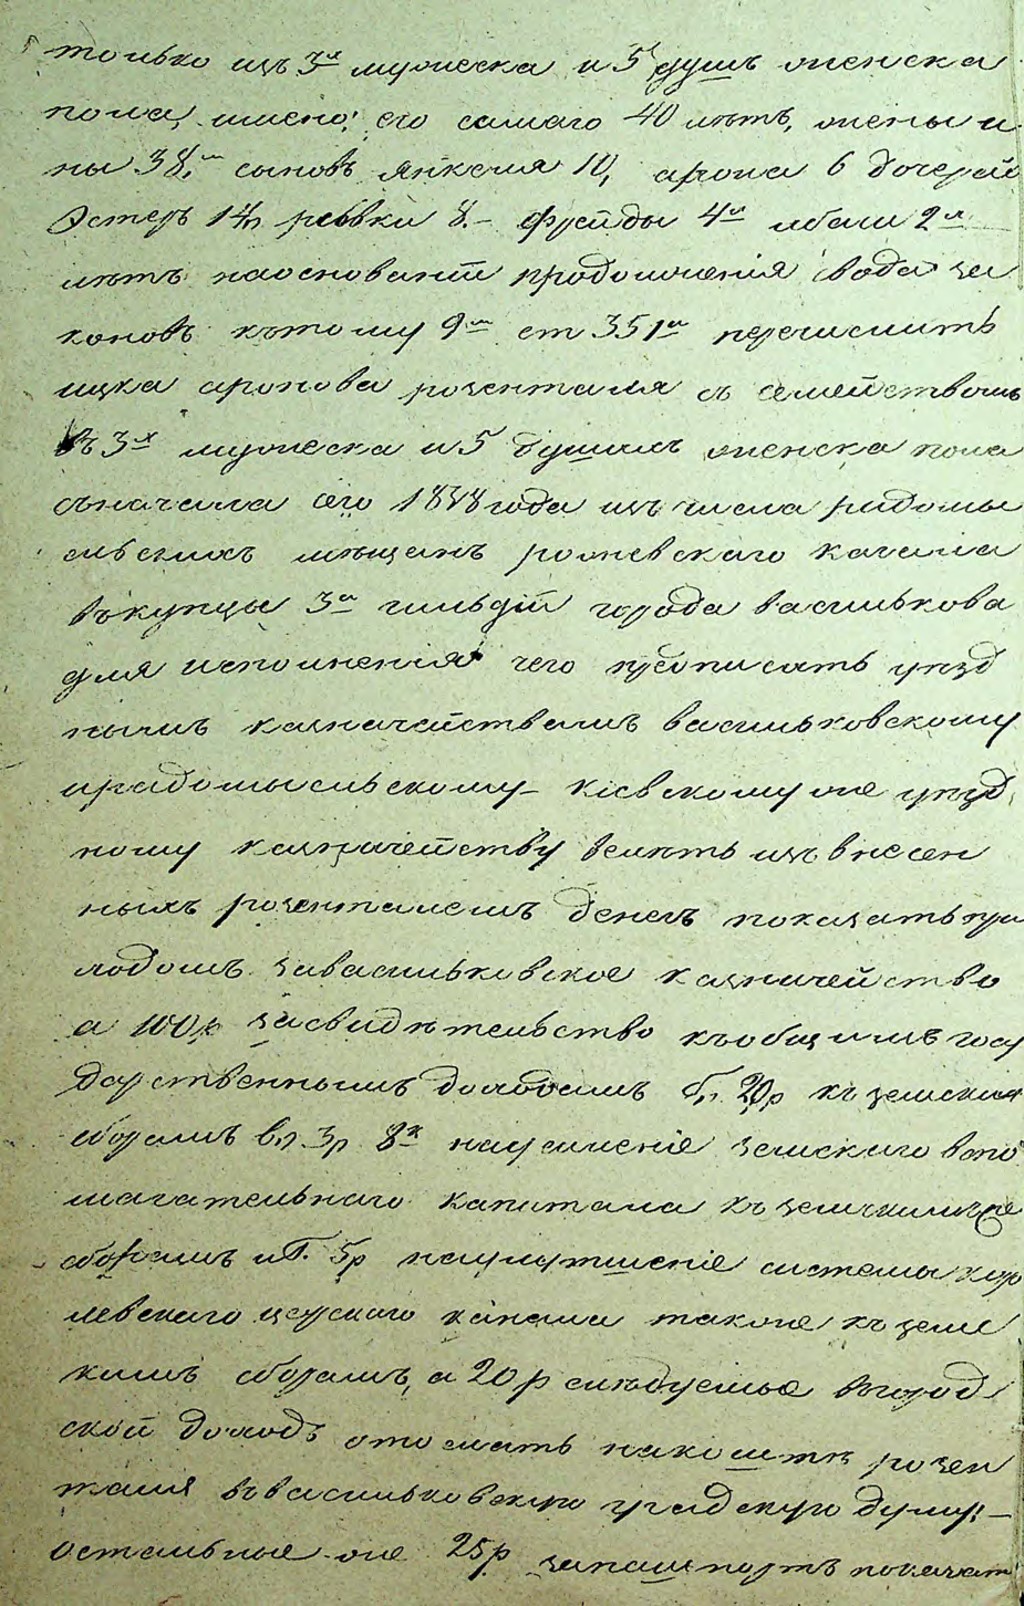 только изъ 3х мужеска и 5 душъ женска
пола, имено: его самаго 40 лѣтъ, жены и
ны 38, сыновъ Янкеля 10, арона 6 дочерей
Эстеръ 14, ривки 8.- Фрейды 4х и бали 2х
лѣтъ наоснованіи продолженія свода за
коновъ къ тому 9му ст 351й перечислить
ицка аронова розенталя съ семействомъ
въ 3х мужеска и 5 душахъ женска пола
съначала сего 1848 года изъ числа радомы
сльскихъ мѣщанъ рожевскаго кагала
въ купцы 3й гильдіи города василькова
для исполненія чего предписать уѣзд
нымъ казначействамъ васильковскому
ирадомысльскому- кіевскому же уѣзд
ному казначейству велѣть изъ внесен
ныхъ розенталемъ денегъ показать при
ходомъ завасильковское казначейство
а 100р засвидѣтельство къ общимъ госу
дарственнымъ доходамъ б., 20р къ земскимъ
сборамъ в., 3р 8к наусиленіе земскаго вспо
магательнаго капитала къ земскимъ же
сборамъ и г. 5р наулутшеніе системы кор
левскаго церскаго канала также къ земс
кимъ сборамъ, а 20р слѣдуемые въ город
ской доходъ отослать нащетъ розен
таля въ васильковскую градскую думу:-
остальные же 25р запашпортъ показат